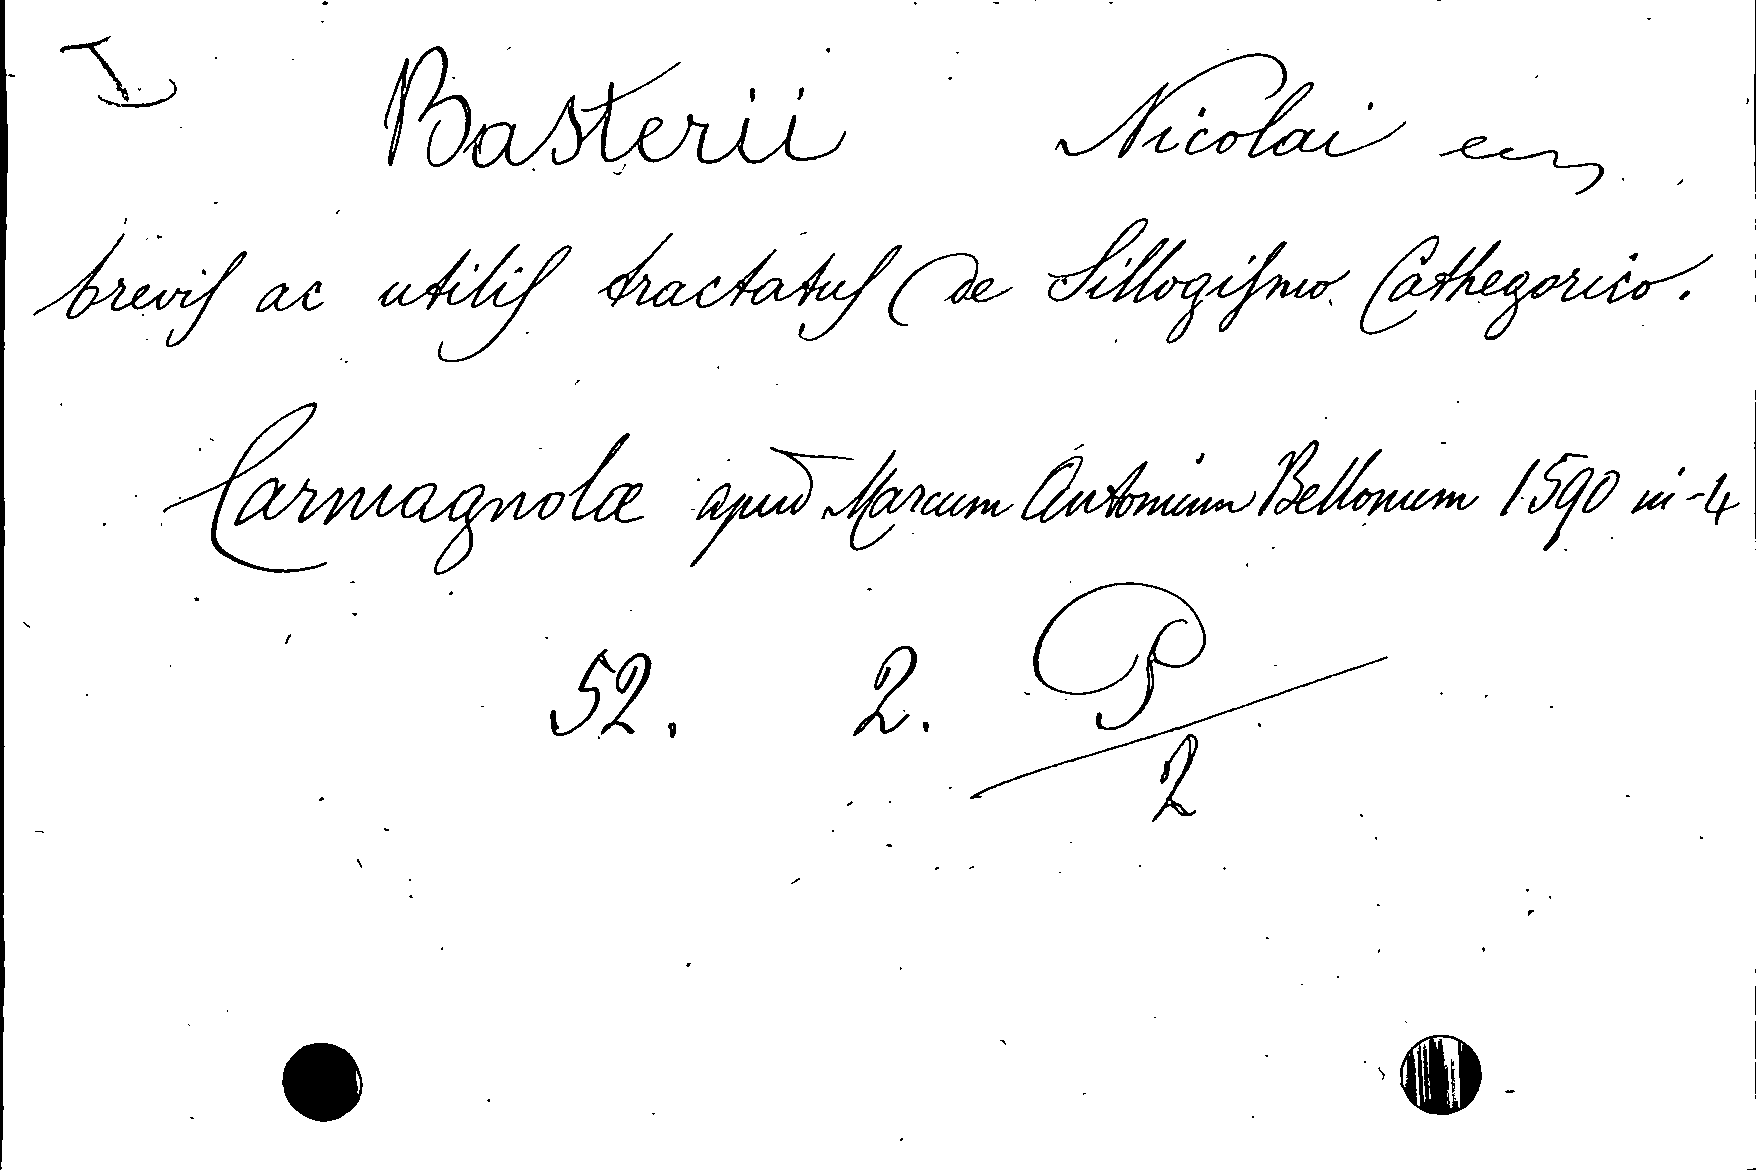 I Basterii Nicolai
brevis ac utilis tractatus de Sillogismo Cathegorico.
Carmagnolæ apud Marcum Antonium Bellonum 1590 in-4
52. 2. P
2